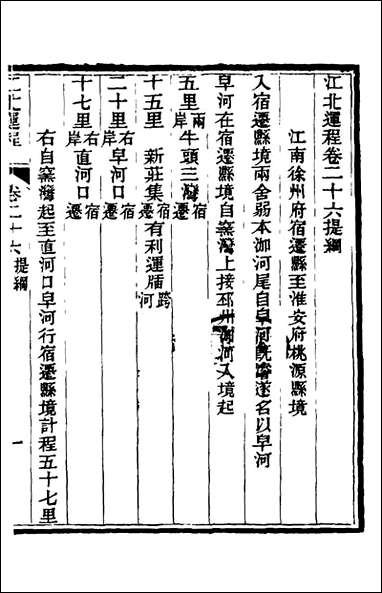 江北運程卷二十六提綱
江南徐州府宿遷縣至淮安府桃源縣境
入宿遷縣境兩舍弱本泇河尾自皁河既濬遂名以皁河
皁河在宿遷縣境自窯灣上接邳州泇河入境起
五里兩岸牛頭三灣宿遷
十五里 新莊集宿遷有利運牐跨河
二十里右岸皁河口宿遷
十七里右岸直河口宿遷
右自窯灣起至直河口皁河行宿遷縣境計程五十七里
江北運程 卷二十六提綱 一